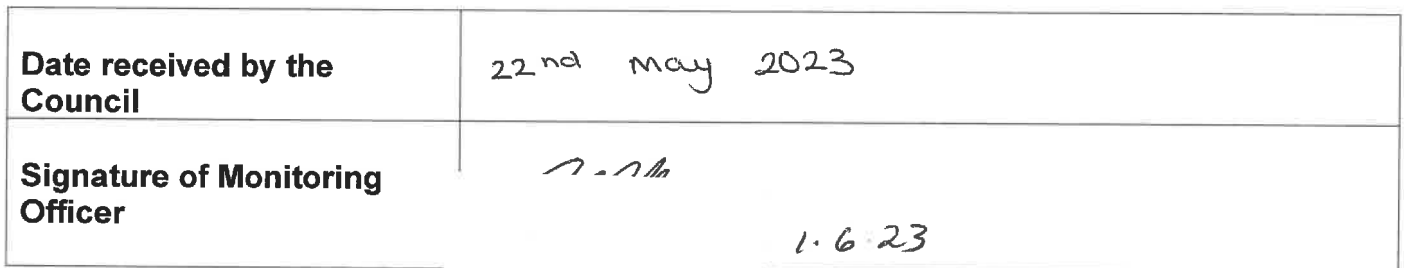 Date received by the
Council
22nd May 2023
Signature of Monitoring
Officer
1.6.23